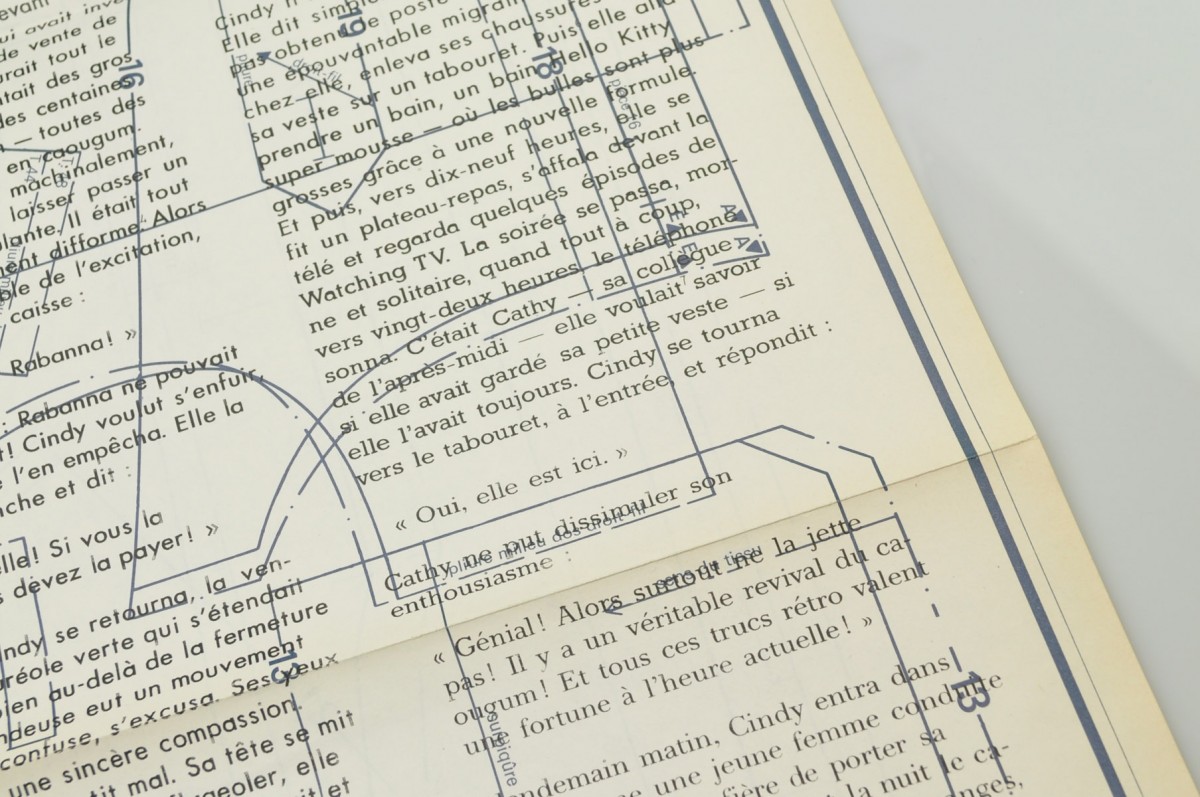 ui avait inve
de vente de
urait tout le
ntait des gros
des centaines
— toutes des
en caougum.
machinalement,
laisser passer un
lante. Il était tout
ment difforme. Alors
ble de l'excitation,
caisse :
Rabanna ! »
: Rabanna ne pouvait
t! Cindy voulut s'enfuir,
l'en empêcha. Elle la
nche et dit :
elle! Si vous la
s devez la payer! »
indy se retourna, la ven-
uréole verte qui s'étendait
bien au-delà de la fermeture
ndeuse eut un mouvement
confuse, s'excusa. Ses yeux
une sincère compassion.
tit mal. Sa tête se mit
geoler, elle
it et
Cindy n
Elle dit simple
pas obtenu de poste
une épouvantable migrai
chez elle, enleva ses chaussures
sa veste sur un tabouret. Puis elle alla
prendre un bain, un bain Hello Kitty
super mousse — où les bulles sont plus
grosses grâce à une nouvelle formule.
Et puis, vers dix-neuf heures, elle se
fit un plateau-repas, s'affala devant la
télé et regarda quelques épisodes de
Watching TV. La soirée se passa, mor-
ne et solitaire, quand tout à coup,
vers vingt-deux heures, le téléphone
sonna. C'était Cathy — sa collègue
de l'après-midi — elle voulait savoir
si elle avait gardé sa petite veste — si
elle l'avait toujours. Cindy se tourna
vers le tabouret, à l'entrée, et répondit :
« Oui, elle est ici. »
Cathy ne put dissimuler son
enthousiasme :
« Génial! Alors surtout ne la jette
pas! Il y a un véritable revival du ca-
ougum! Et tous ces trucs rétro valent
une fortune à l'heure actuelle! »
ndemain matin, Cindy entra dans
ne une jeune femme conduite
fière de porter sa
la nuit le ca-
nges,
16
19
18
13
13
droit-fil
pliure milieu dos droit-fil
sens du tissu
A
A
E
E